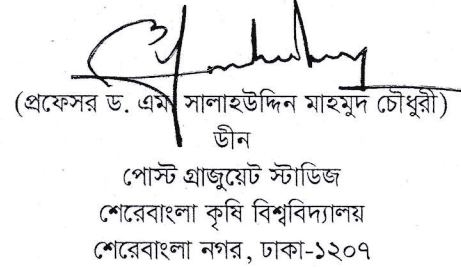 (প্রফেসর ড. এম সালাহউদ্দিন মাহমুদ চৌধুরী)
ডীন
পোস্ট গ্রাজুয়েট স্টাডিজ
শেরেবাংলা কৃষি বিশ্ববিদ্যালয়
শেরেবাংলা নগর, ঢাকা-১২০৭